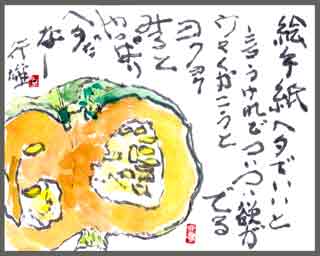 絵手紙ヘタでいいと
言うけれどついつい欲が
でる
うまくかこうと
ヨクヨク
みると
やっぱり
ヘタだ
なー
行雄